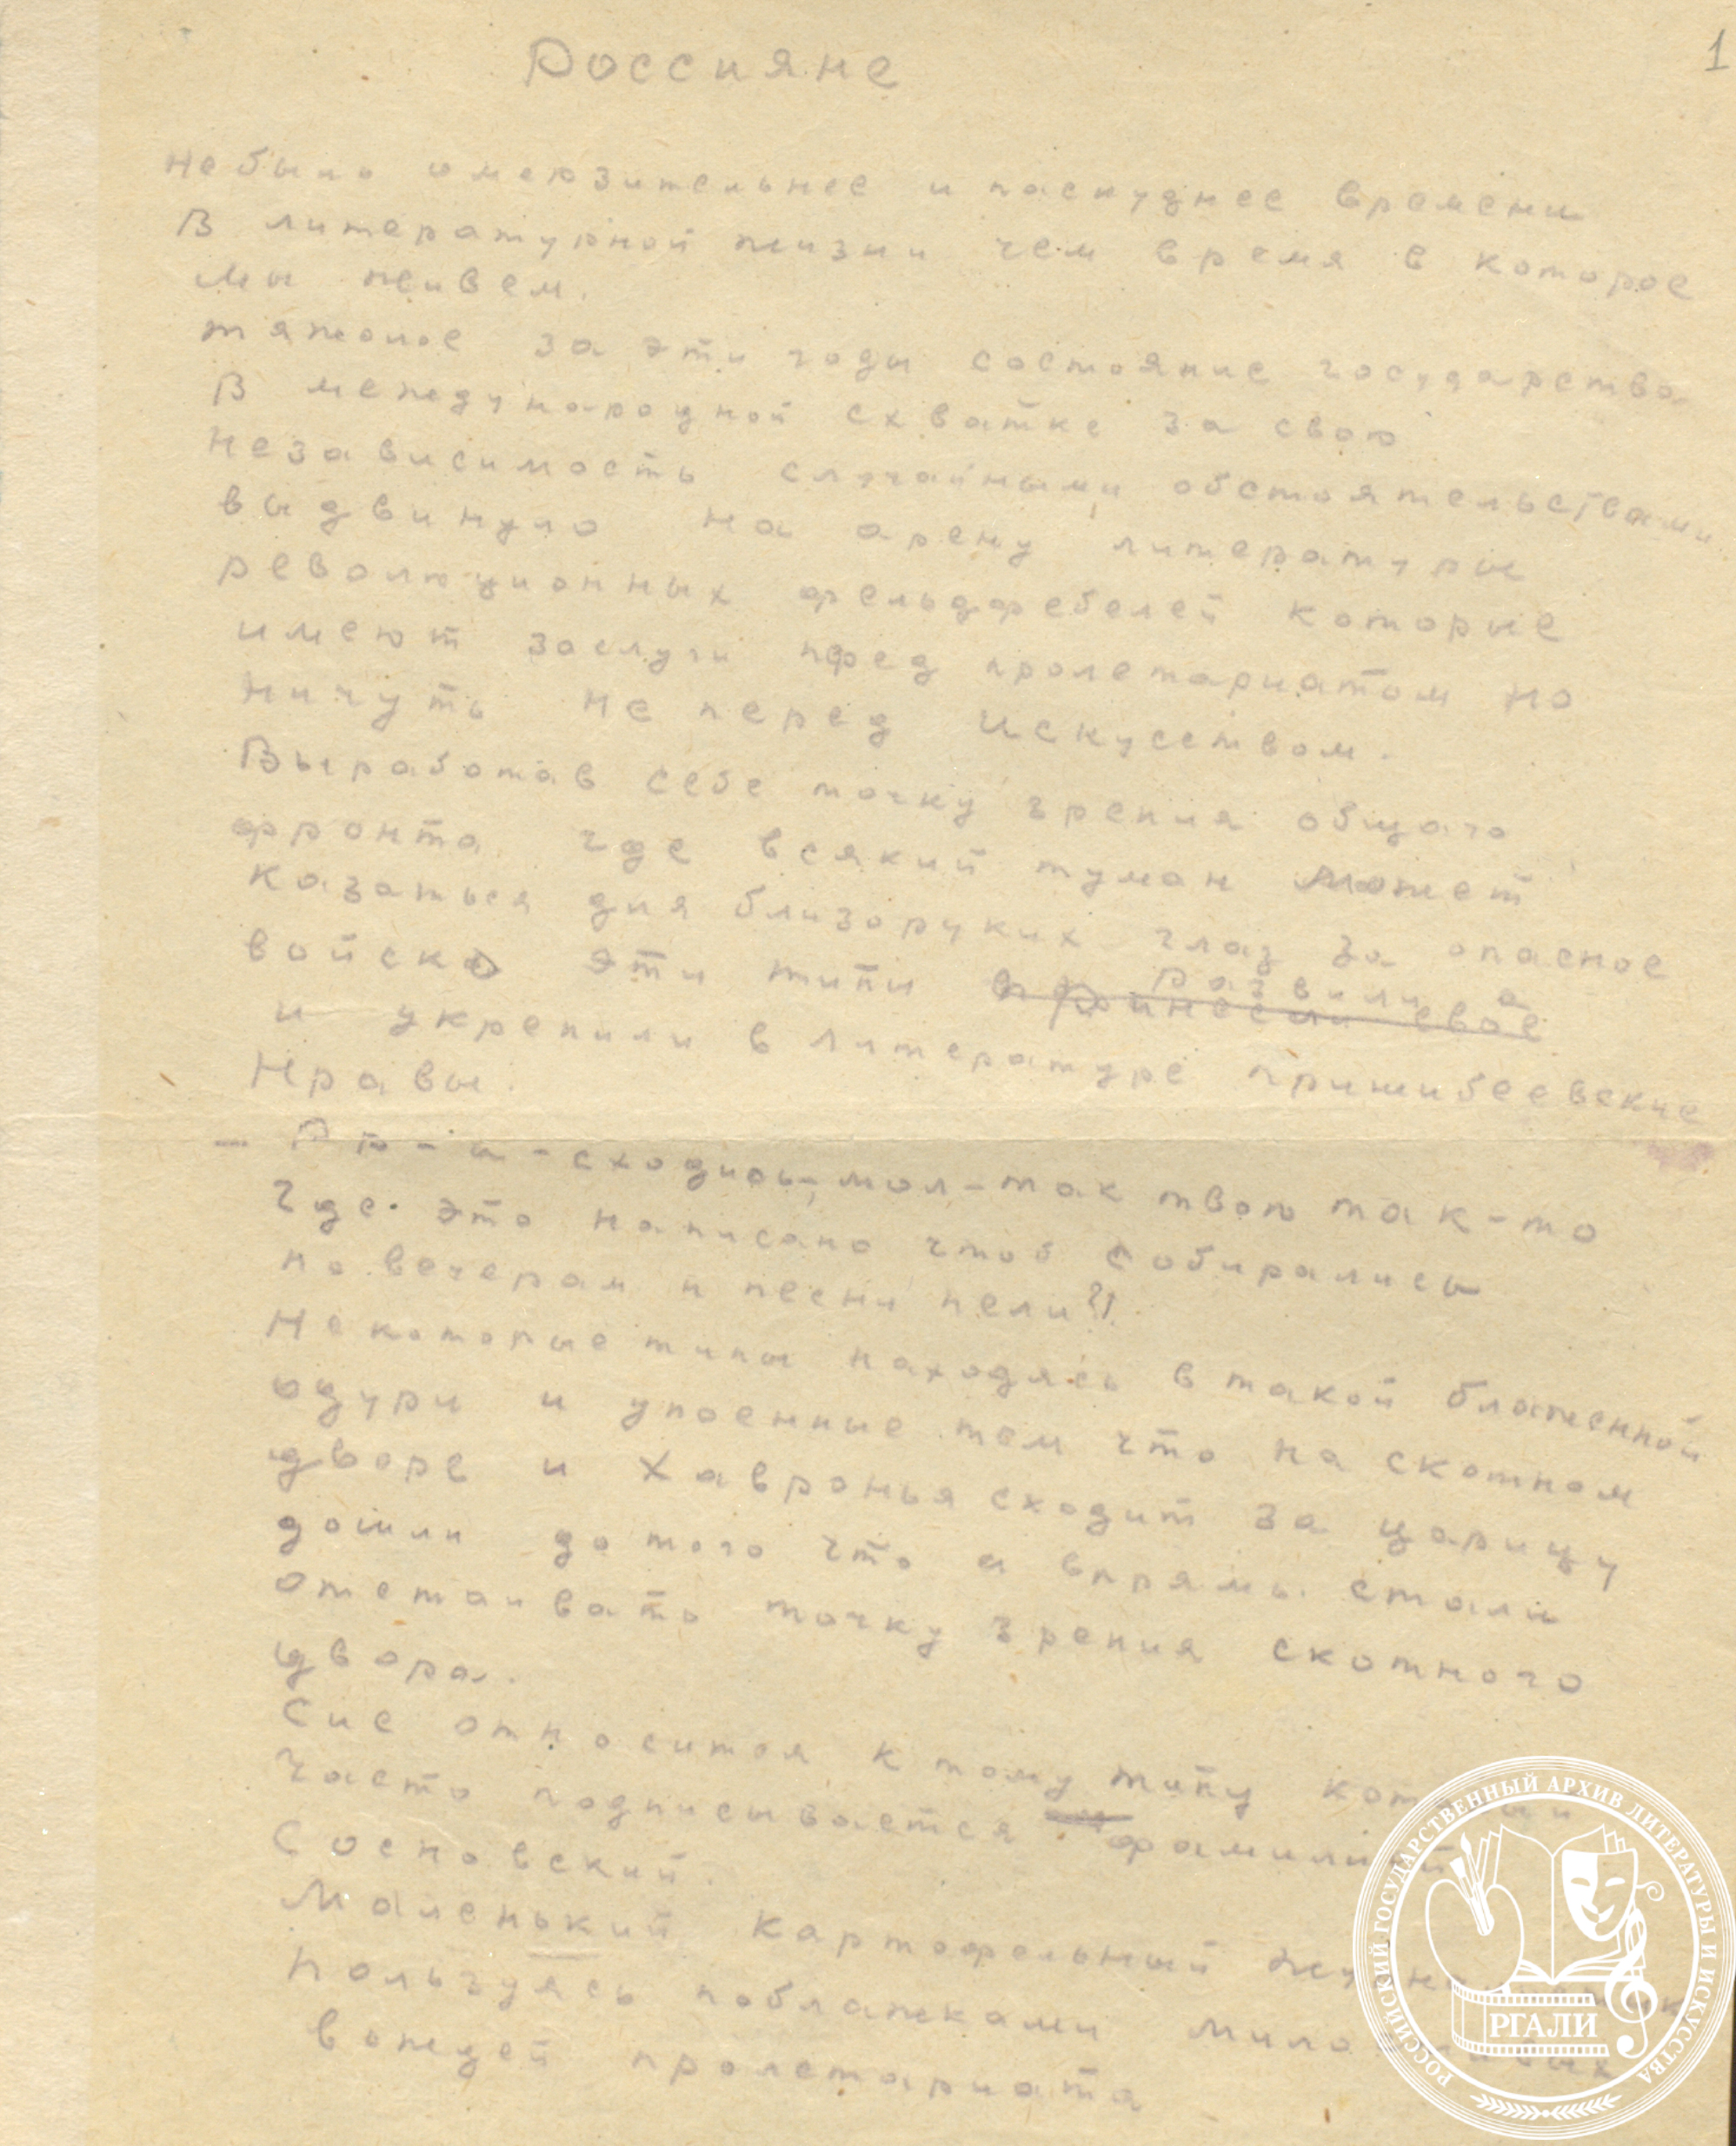 Россияне
1
Не было омерзительнее и паскуднее времени
В литературной жизни чем время в которое
мы живем.
тяжолое за эти годы состояние государства
В международной схватке за свою
Независимость случайными обстоятельствами
выдвинуло на арену литературы
революционных фельдфебелей которые
имеют заслуги пред пролетариатом но
ничуть не перед искусством.
Выработав себе точку зрения общаго
фронта где всякий туман может
казаться для близоруких глаз за опасное
войско эти типи развили а
принесли свое
и укрепили в литературе пришибеевские
Нравы.
– Рр-а-сходись, мол-так твою так-то
Где это написано чтоб собирались
по вечерам и песни пели?!
Некоторые типы находясь в такой блаженной
одури и упоенные тем что на скотном
дворе и Хавронья сходит за царицу
дошли до того что и впрямь стали
отстаивать точку зрения скотного
двора.
Сие относится к тому типу который
часто подписывается фамилией
Сосновский.
Маленький картофельный журналистик
пользуясь поблажками милостивых
вождей пролетариата
РОССИЙСКИЙ ГОСУДАРСТВЕННЫЙ АРХИВ ЛИТЕРАТУРЫ И ИСКУССТВА
РГАЛИ